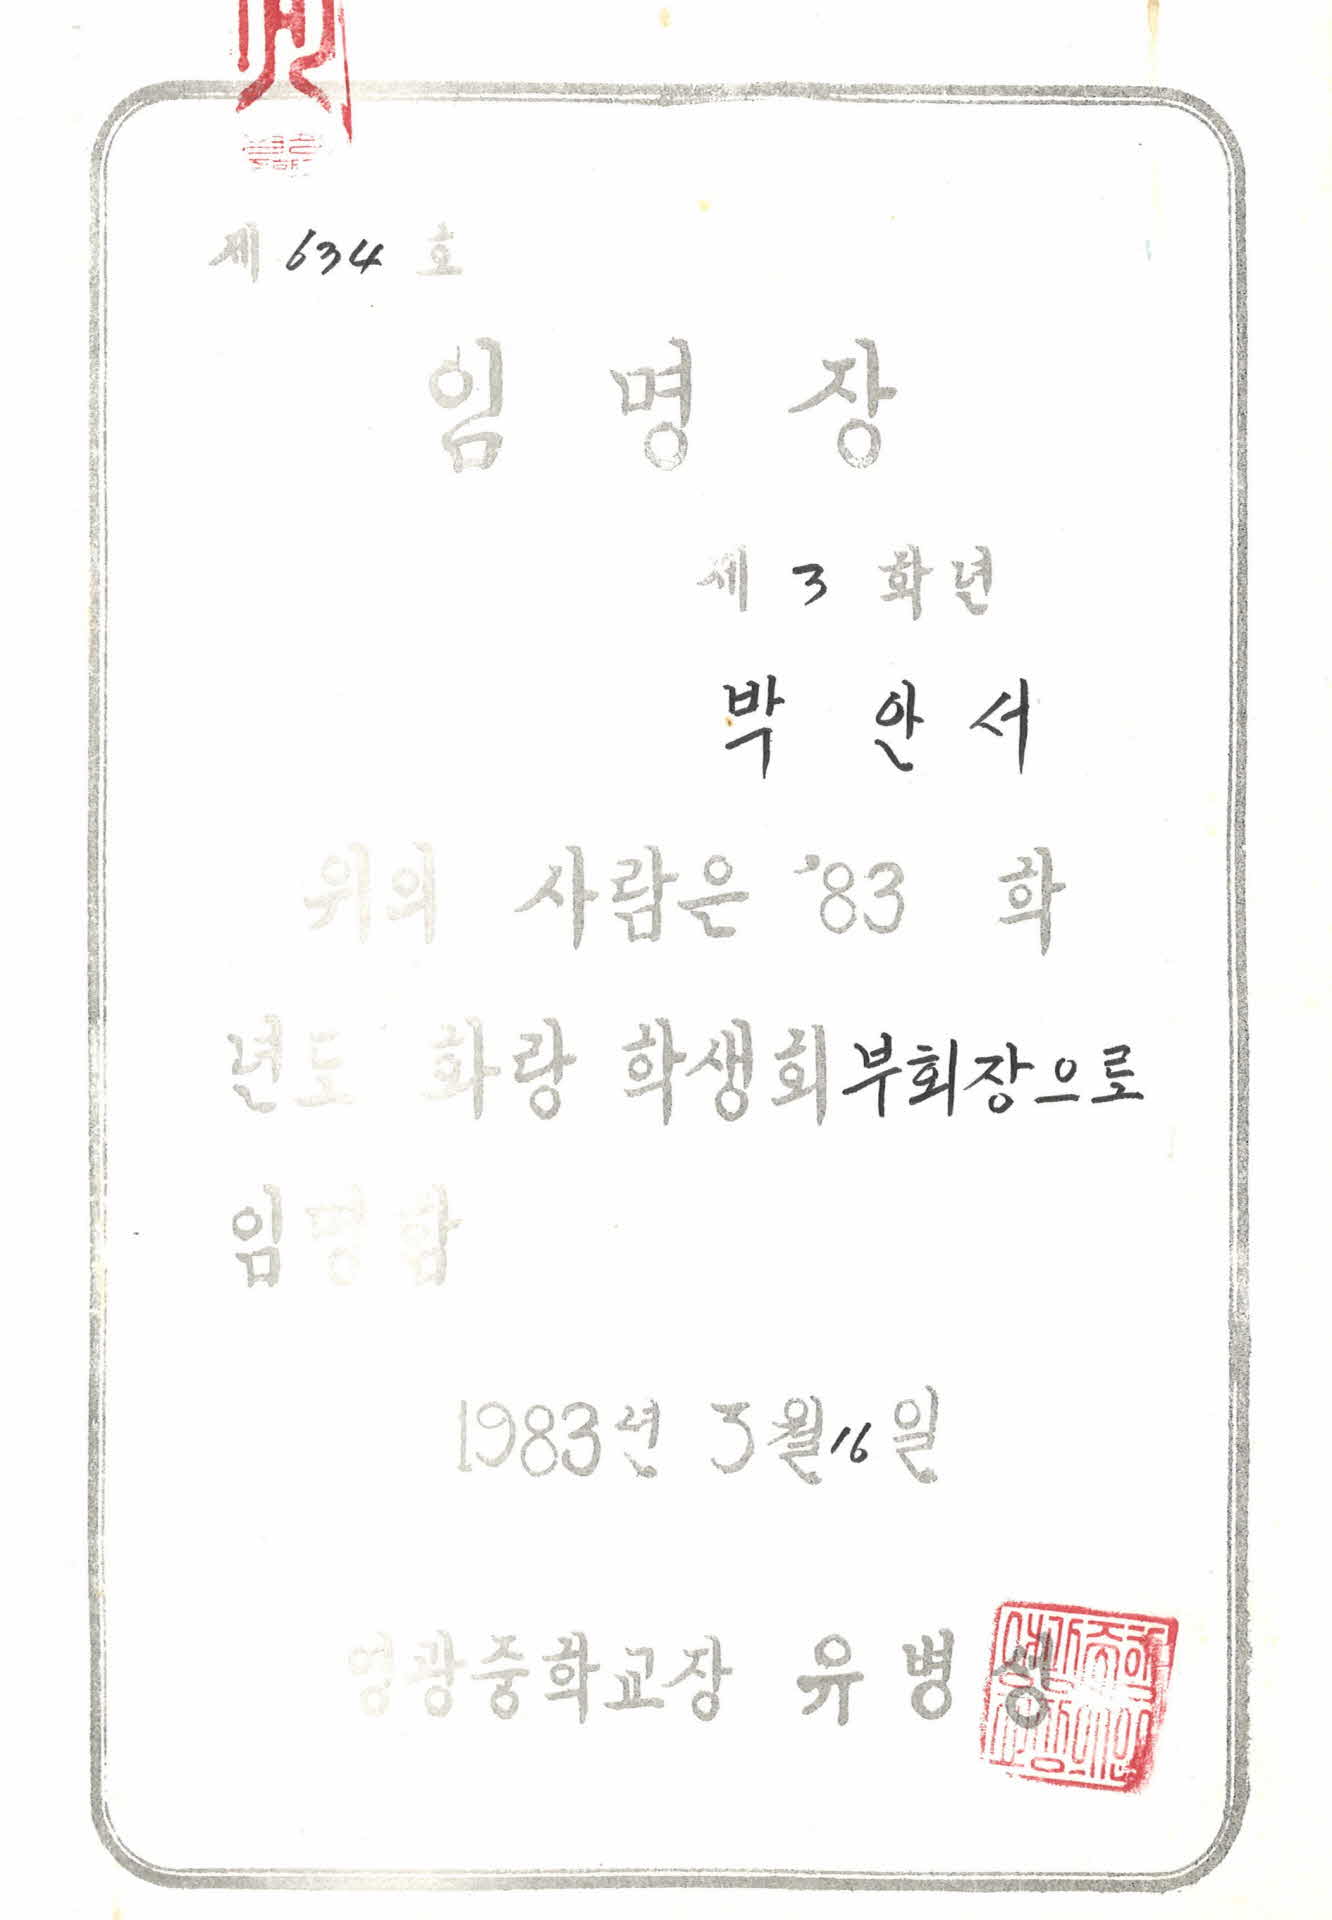 제 634 호
임 명 장
제 3 학년
박 안 서
위의 사람은 '83 학
년도 화랑 학생회 부회장으로
임명함
1983년 3월 16일
영광중학교장 유 병